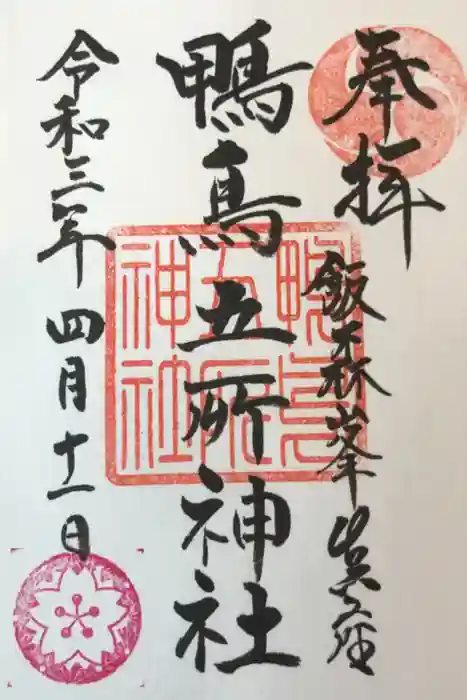 奉拝
飯森峯鎮座
鴨鳥五所神社
鴨鳥五所神社
令和三年 四月十一日